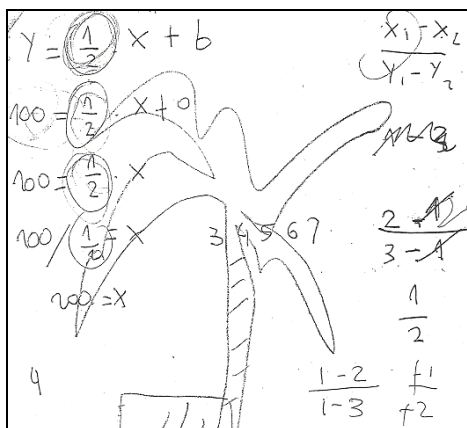 Y = 1/2 · X + b
100 = 1/2 · X + 0
100 = 1/2 · X
100 / 1/2 = X
200 = X
4
3 4 5 6 7
X1 - X2
Y1 - Y2
2 - 1
3 - 1
1
2
1 - 2
1 - 3
+2